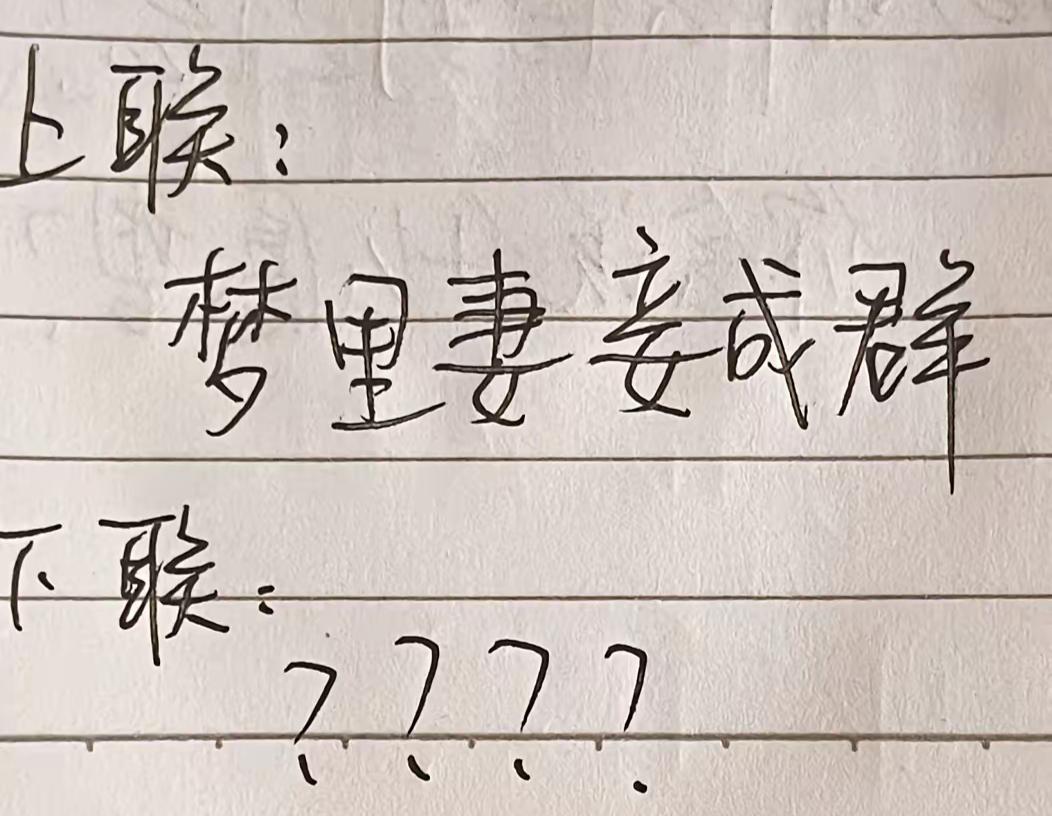 上联：
梦里妻妾成群
下联：
？？？？